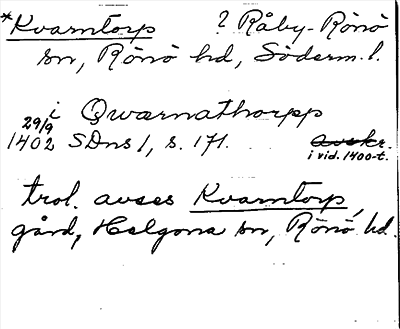 *Kvarntorp ? Råby-Rönö
sn, Rönö hd, Söderm. l.
i Qwærnathorpp
29/9
1402 SDns 1, s. 171. avskr.
i vid. 1400-t.
trol. avses Kvarntorp,
gård, Helgona sn, Rönö hd.